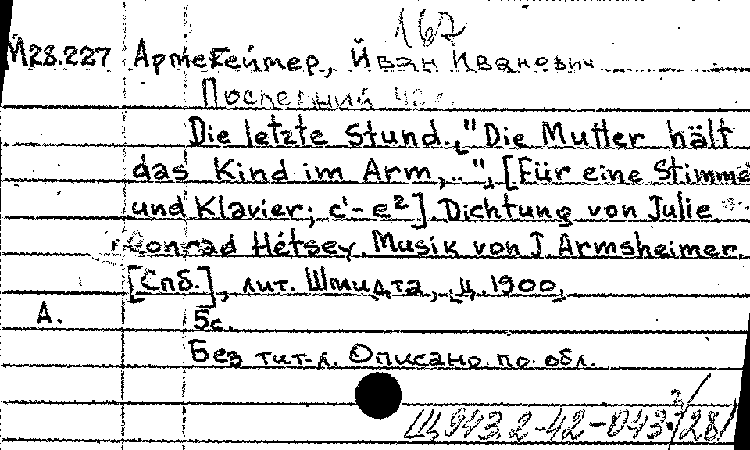 167
М28.227 Армсгеймер, Иван Иванович
Последний
Die letzte Stund., "Die Mutter hält
das Kind im Arm,..", [Für eine Stimme
und Klavier; c'-e²]. Dichtung von Julie
Conrad Hétsey. Musik von J. Armsheimer.
[Спб.], лит. Шмидта, ц. 1900,
А. 5с.
Без тит. л. Описано по обл.
Щ943.2-42-043.3/281